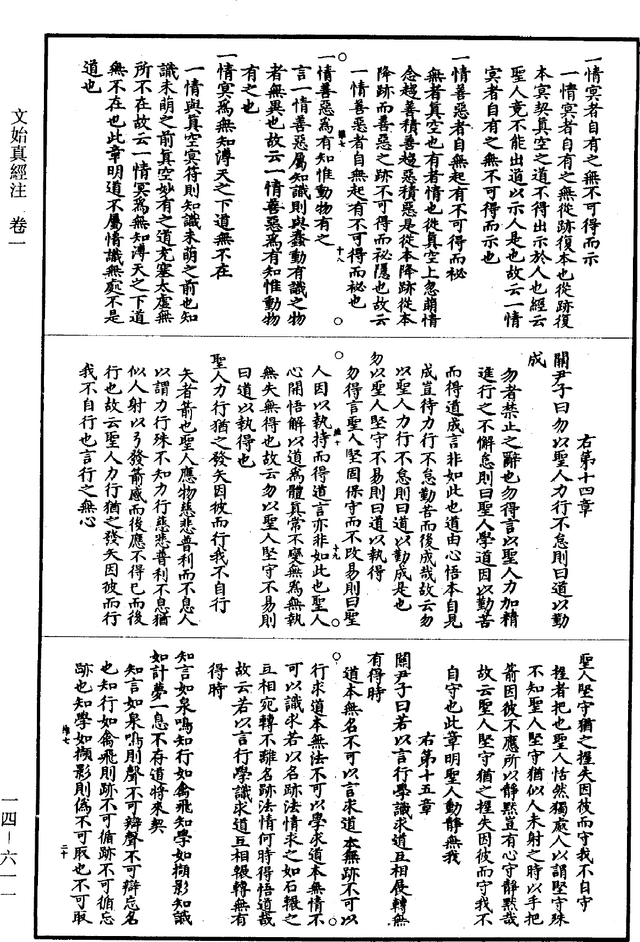 文始真經注 卷一
一四－六一一
一情冥者自有之無不可得而示
一情冥者自有之無從跡復本也從跡復
本冥契真空之道不得出示於人也經云
聖人竟不能出道以示人是也故云一情
冥者自有之無不可得而示也
一情善惡者自無起有不可得而祕
無者真空也有者情也從真空上忽萌情
念趨善積善趨惡積惡是從本降跡從本
降跡而善惡之跡不可得而祕隱也故云
一情善惡者自無起有不可得而祕也
一情善惡為有知惟動物有之
言一情善惡屬知識則與蠢動有識之物
者無異也故云一情善惡為有知惟動物
有之也
一情冥為無知溥天之下道無不在
一情與真空冥符則知識未萌之前也知
識未萌之前真空妙有之道充塞太虛無
所不在故云一情冥為無知溥天之下道
無不在也此章明道不屬情識無處不是
道也
右第十四章
關尹子曰勿以聖人力行不怠則曰道以勤
成
勿者禁止之辭也勿得言以聖人力加精
進行之不懈怠則曰聖人學道因以勤苦
而得道成言非如此也道由心悟本自見
成豈待力行不怠勤苦而後成哉故云勿
以聖人力行不怠則曰道以勤成是也
勿以聖人堅守不易則曰道以執得
勿得言聖人堅固保守而不改易則曰聖
人因以執持而得道言亦非如此也聖人
心開悟解以道為體真常不變無為無執
無失無得也故云勿以聖人堅守不易則
曰道以執得也
聖人力行猶之發矢因彼而行我不自行
矢者箭也聖人應物慈悲普利而不息人
以謂力行殊不知力行慈悲普利不息猶
似人射以弓發箭感而後應不得已而後
行也故云聖人力行猶之發矢因彼而行
我不自行也言行之無心
聖人堅守猶之握矢因彼而守我不自守
握者把也聖人恬然獨處人以謂堅守殊
不知聖人堅守猶似人未射之時以手把
箭因彼不應所以靜默豈有心守靜默哉
故云聖人堅守猶之握矢因彼而守我不
自守也此章明聖人動靜無我
右第十五章
關尹子曰若以言行學識求道互相展轉無
有得時
道本無名不可以言求道本無跡不可以
行求道本無法不可以學求道本無情不
可以識求若以名跡法情求之如石輾之
互相宛轉不離名跡法情何時得悟道哉
故云若以言行學識求道互相輾轉無有
得時
知言如泉鳴知行如禽飛知學如擷影知識
如計夢一息不存道將來契
知言如泉鳴則聲不可辯聲不可辯忘名
也知行如禽飛則跡不可循跡不可循忘
跡也知學如擷影則偽不可取也不可取